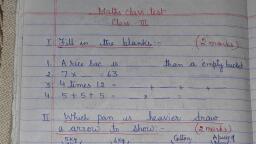 Maths class test
Class - III
I. Fill in the blanks :- (2 marks)
1. A rice bac is ___ than a empty bucket
2. 7 x ___ = 63
3. 4 times 12 = ___ + ___ + ___ + ___
4. 5 + 5 + 5 = ___ , ___
II Which pan is heavier draw
a arrow to show :- (2 marks)
5kg 6kg Cotton